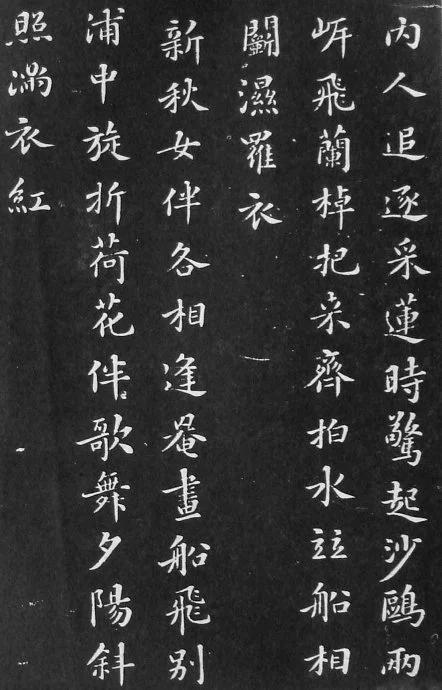 内人追逐采蓮時驚起沙鷗兩
岸飛蘭棹把来齊拍水竝船相
鬭濕羅衣
新秋女伴各相逢罨畫船飛别
浦中旋折荷花伴歌舞夕陽斜
照满衣紅